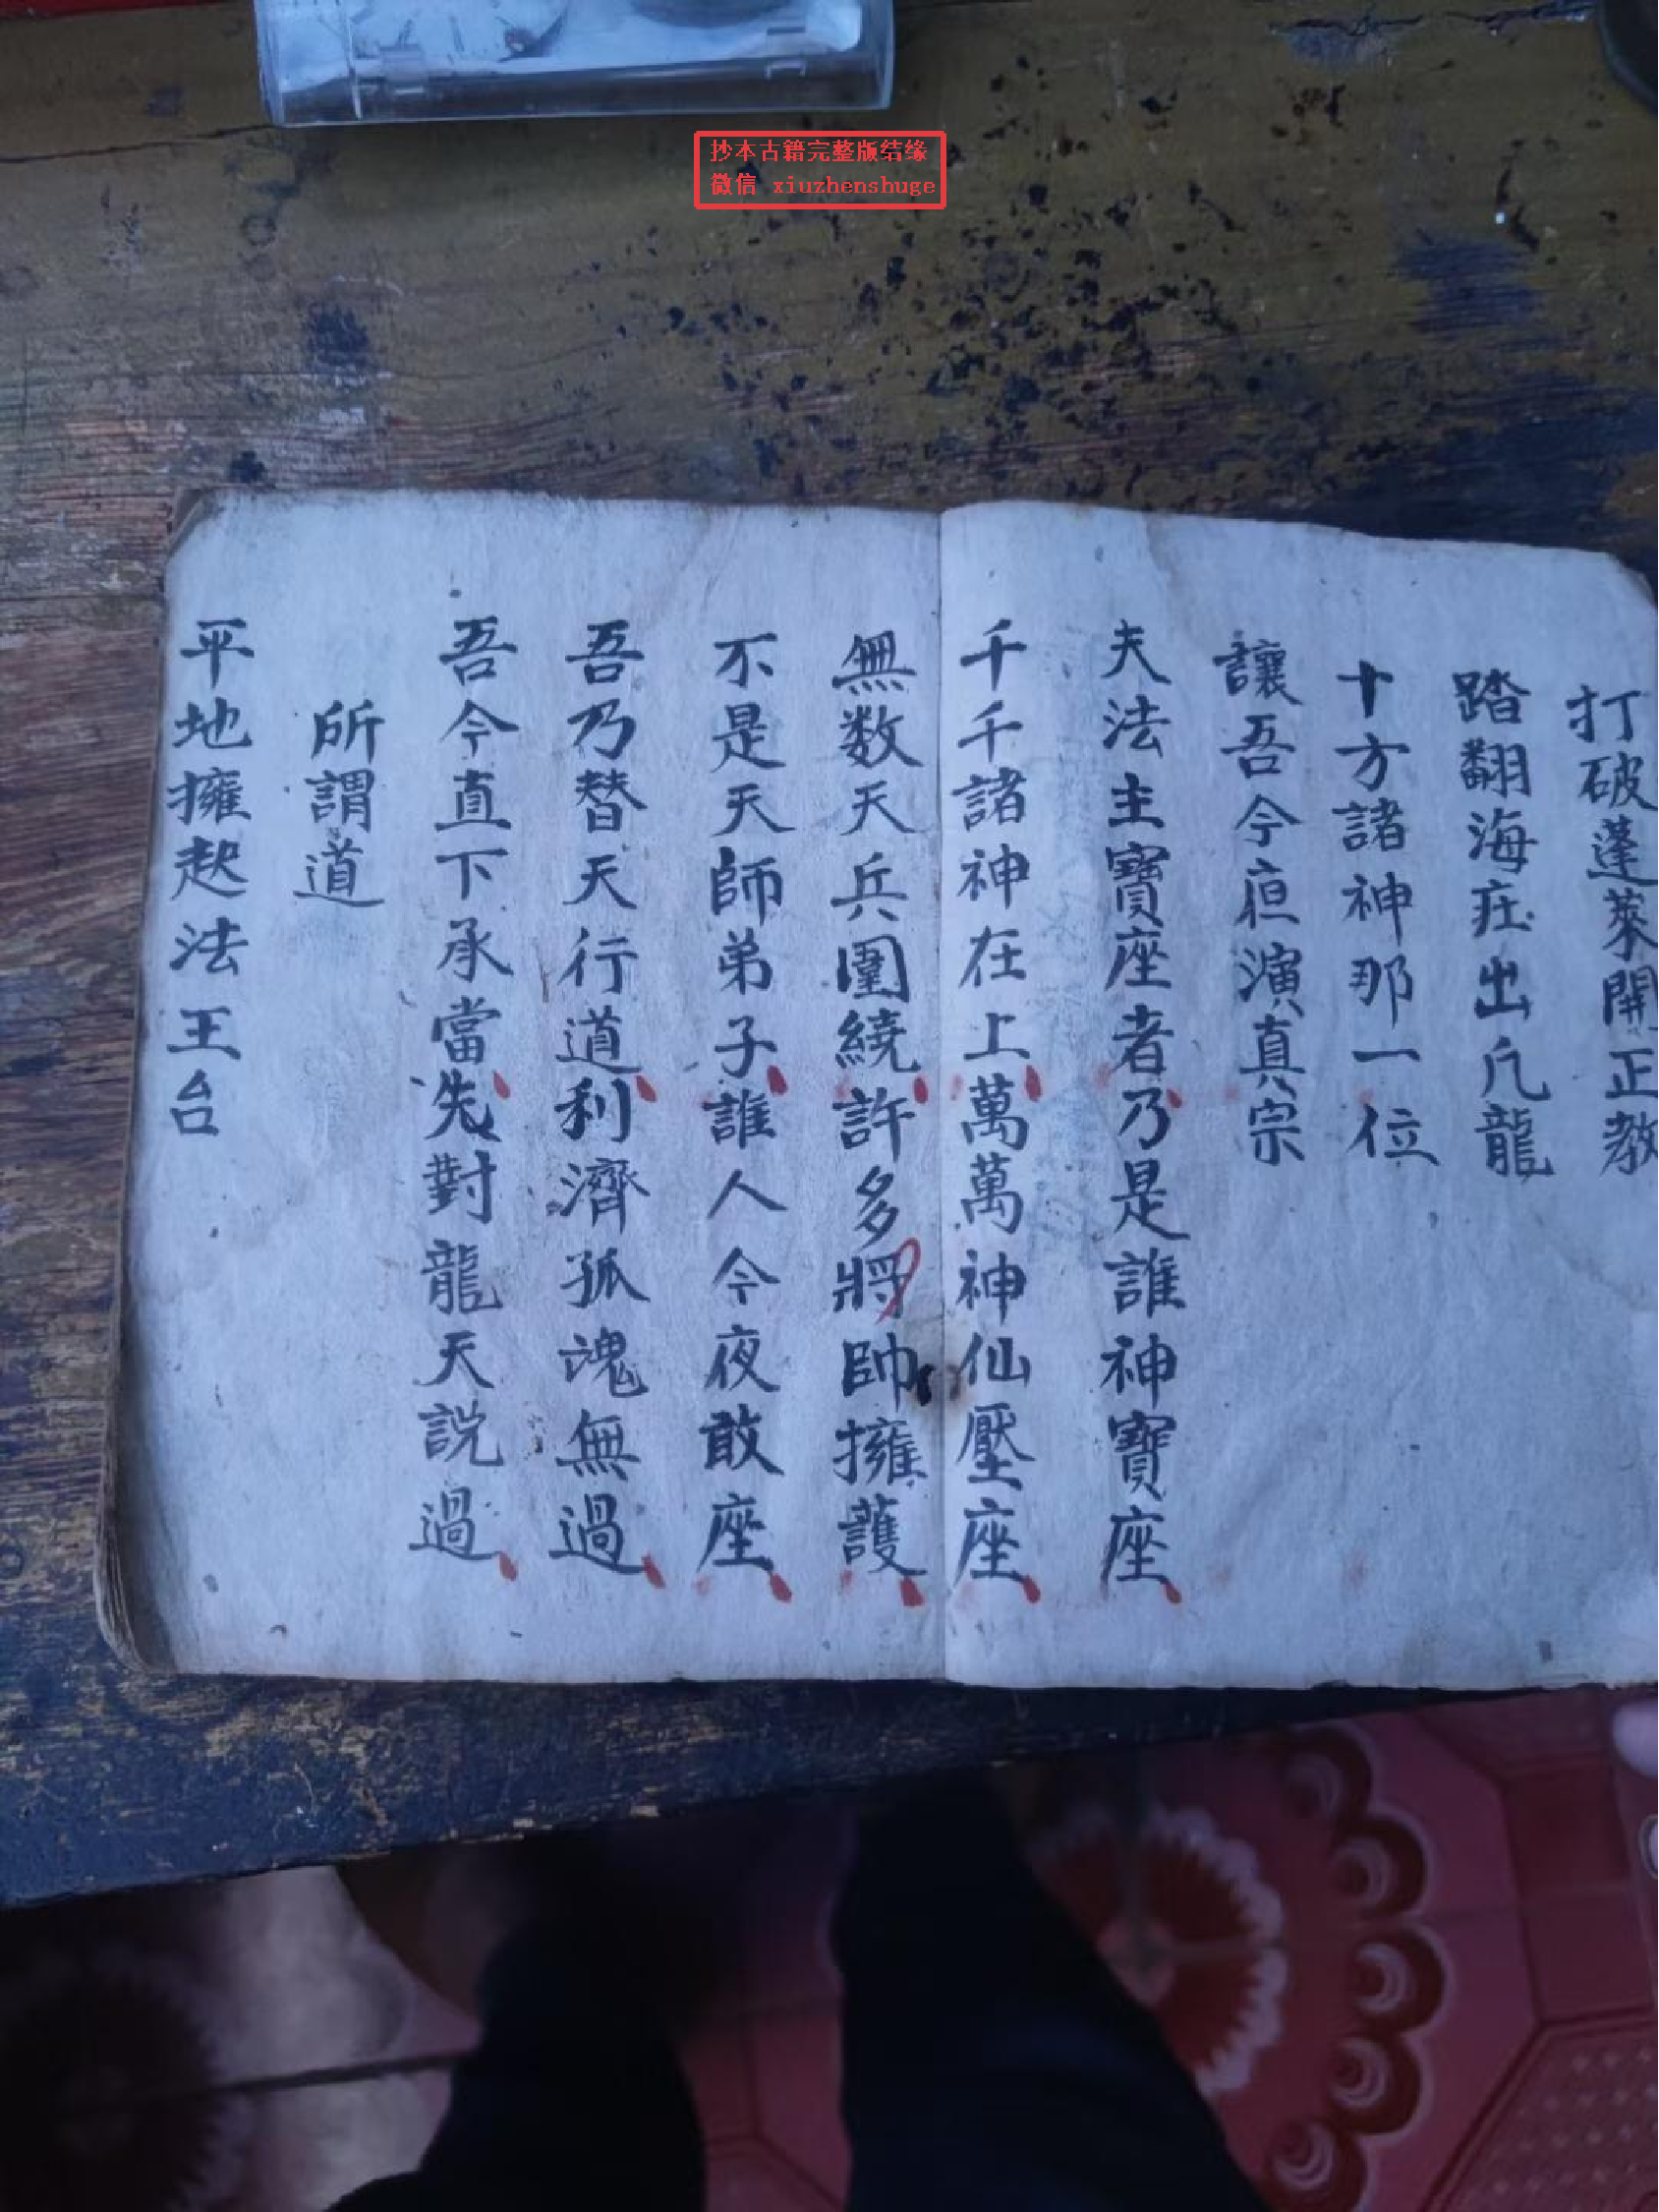 抄本古籍完整版结缘
微信 xiuzhenshuge
打破蓬萊開正教
踏翻海疰出凡龍
十方諸神那一位
讓吾今痘演真宗
夫法主寶座者乃是誰神寶座
千千諸神在上萬萬神仙壓座
無数天兵圍繞許多將帥擁護
不是天師弟子誰人今夜敢座
吾乃替天行道利濟孤魂無過
吾今直下承當先對龍天説過
所謂道
平地擁起法王台